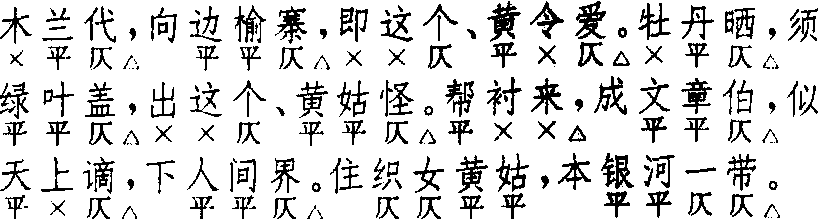 木兰代，向边榆寨，即这个、黄令爱。牡丹晒，须
×平仄△ 平平仄△××仄 平×仄△×平仄△
绿叶盖，出这个、黄姑怪。帮衬来，成文章伯，似
平平仄△××仄 平平仄△平××△ 平平仄△
天上谪，下人间界。住织女黄姑，本银河一带。
平×仄△ 平平仄△ 仄仄平平 平平仄仄△